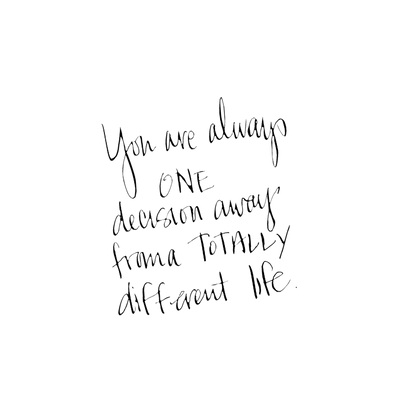 You are always
ONE
decision away
from a TOTALLY
different life.